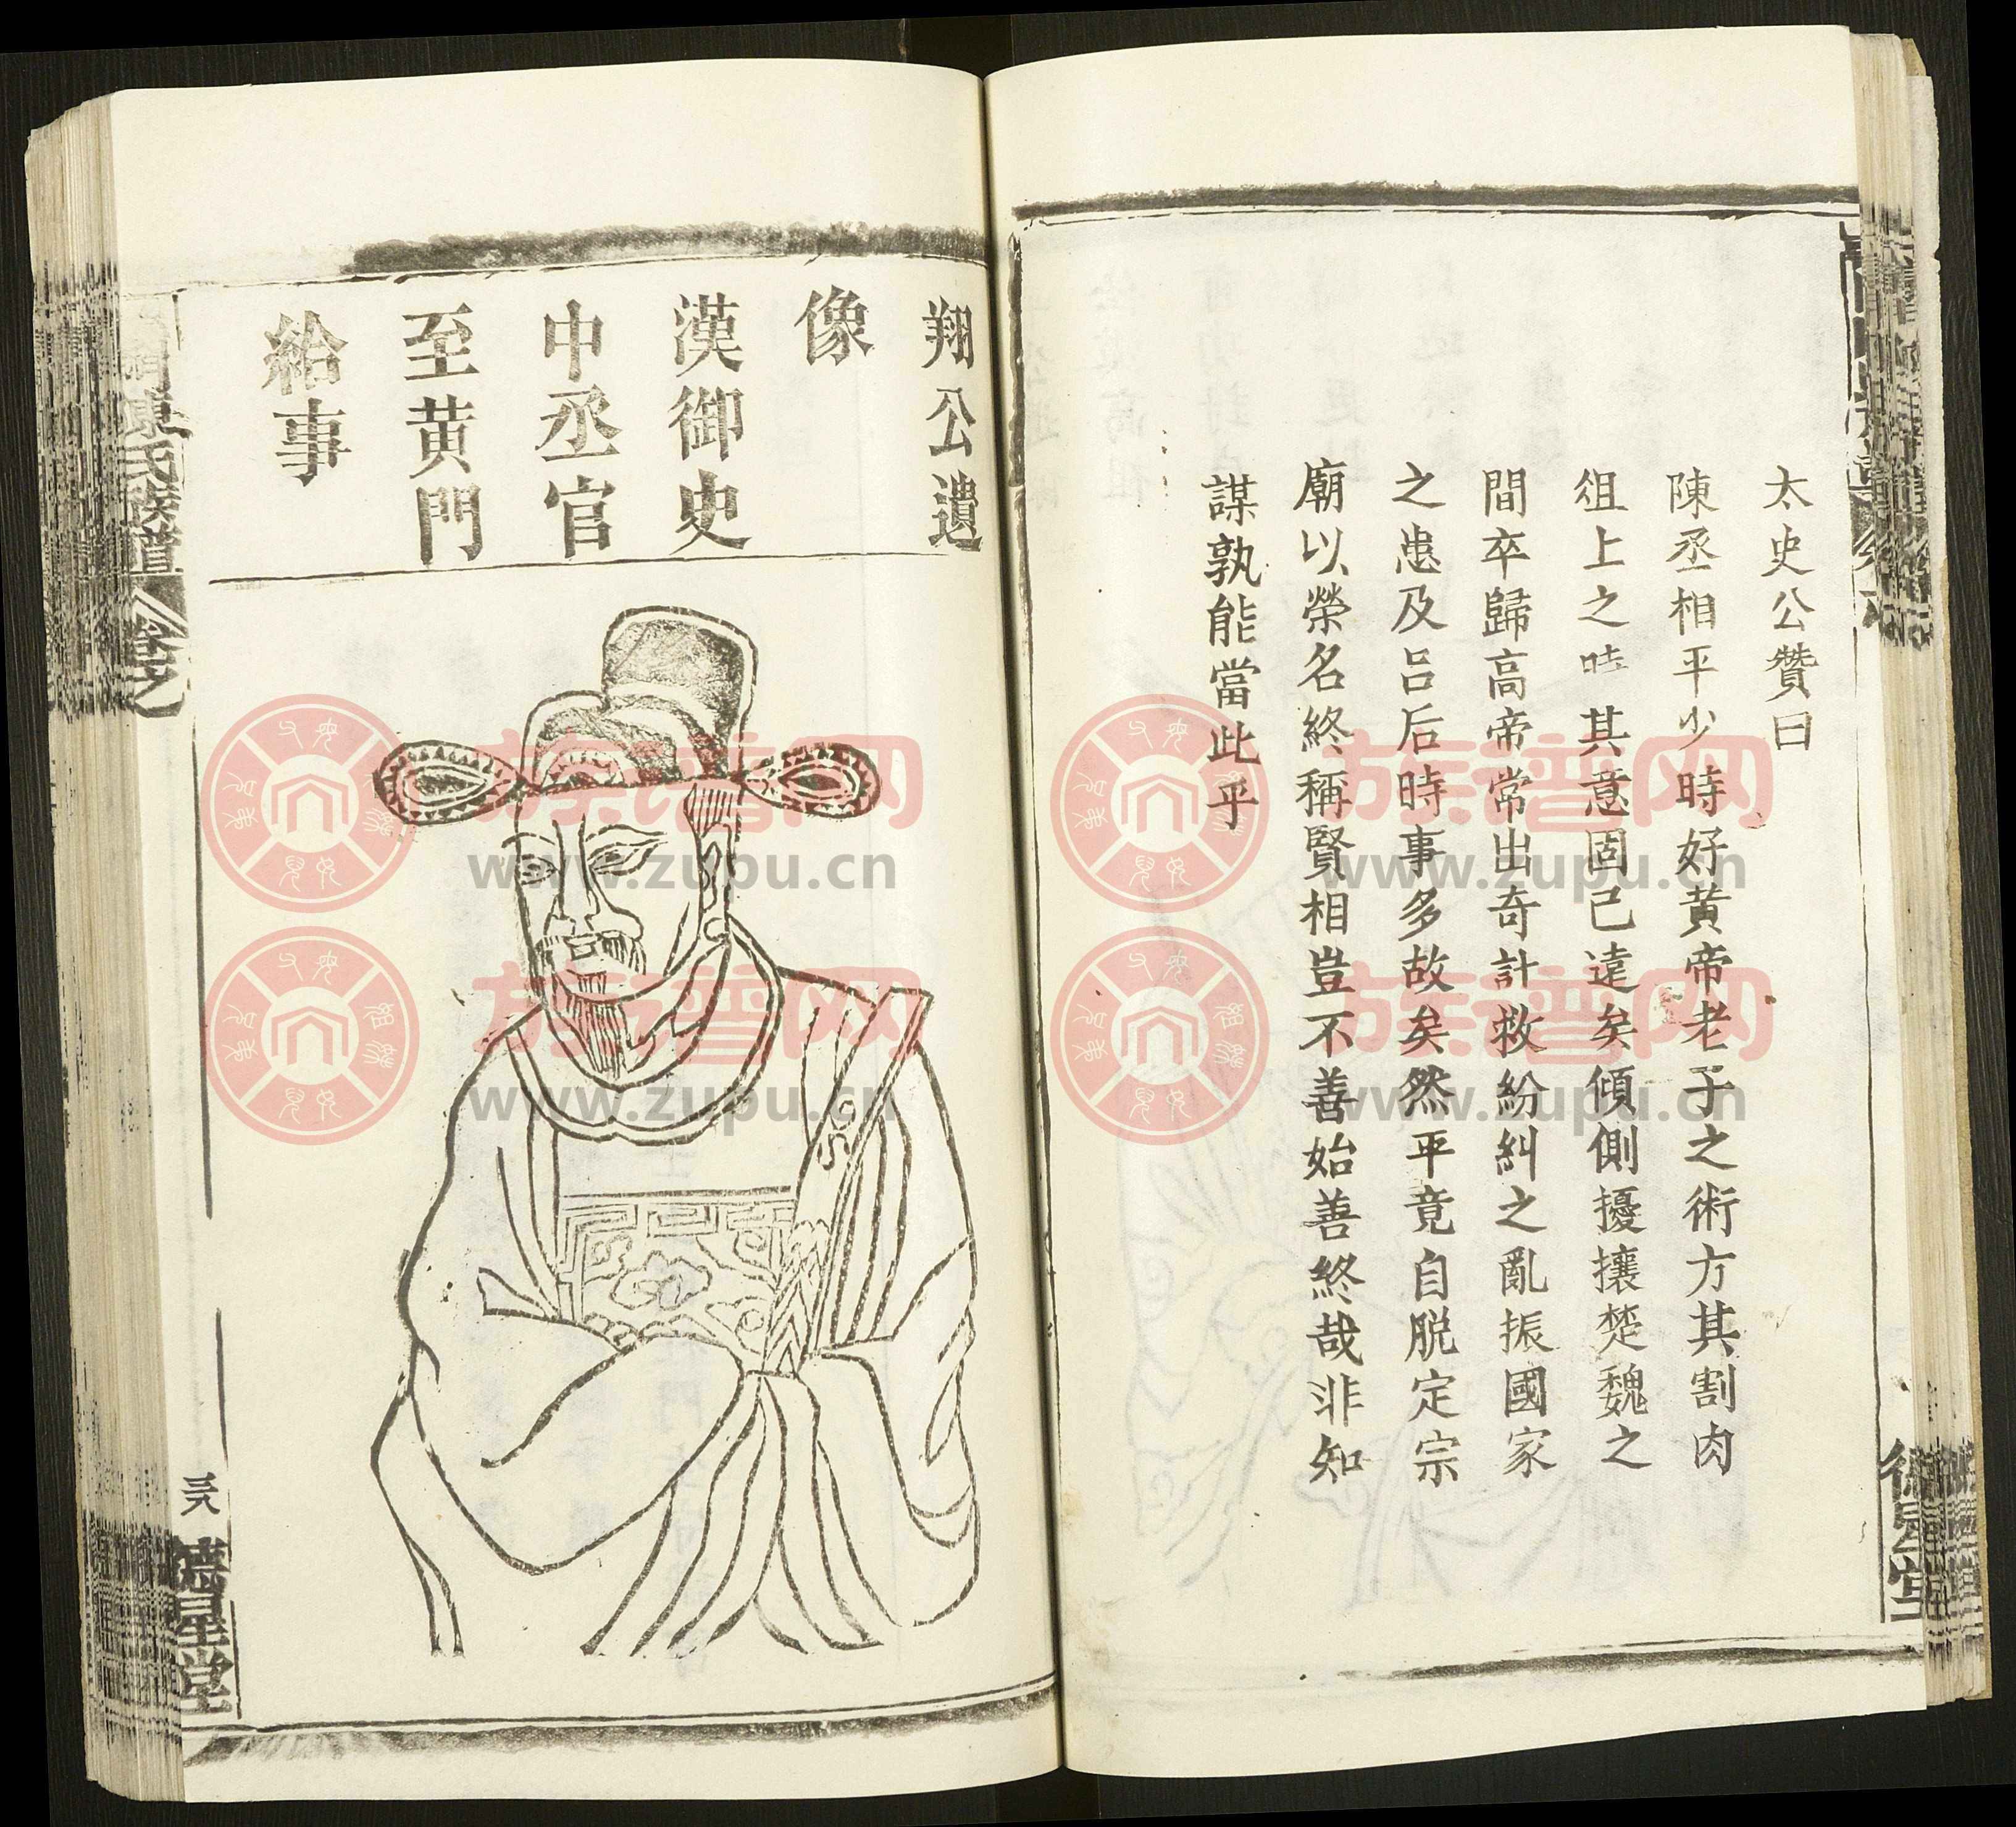 太史公贊曰
陳丞相平少時好黄帝老子之術方其割肉
俎上之時其意固已逺矣傾側擾攘楚魏之
間卒歸高帝常出奇計救紛糾之亂振國家
之患及吕后時事多故矣然平竟自脱定宗
廟以榮名終稱賢相豈不善始善終哉非知
謀孰能當此乎
翔公遺
像
漢御史
中丞官
至黄門
給事
陳氏族譜
卷之
三八
德星堂
族譜网
www.zupu.cn
族譜网
www.zupu.cn
族譜网
www.zupu.cn
族譜网
www.zupu.cn